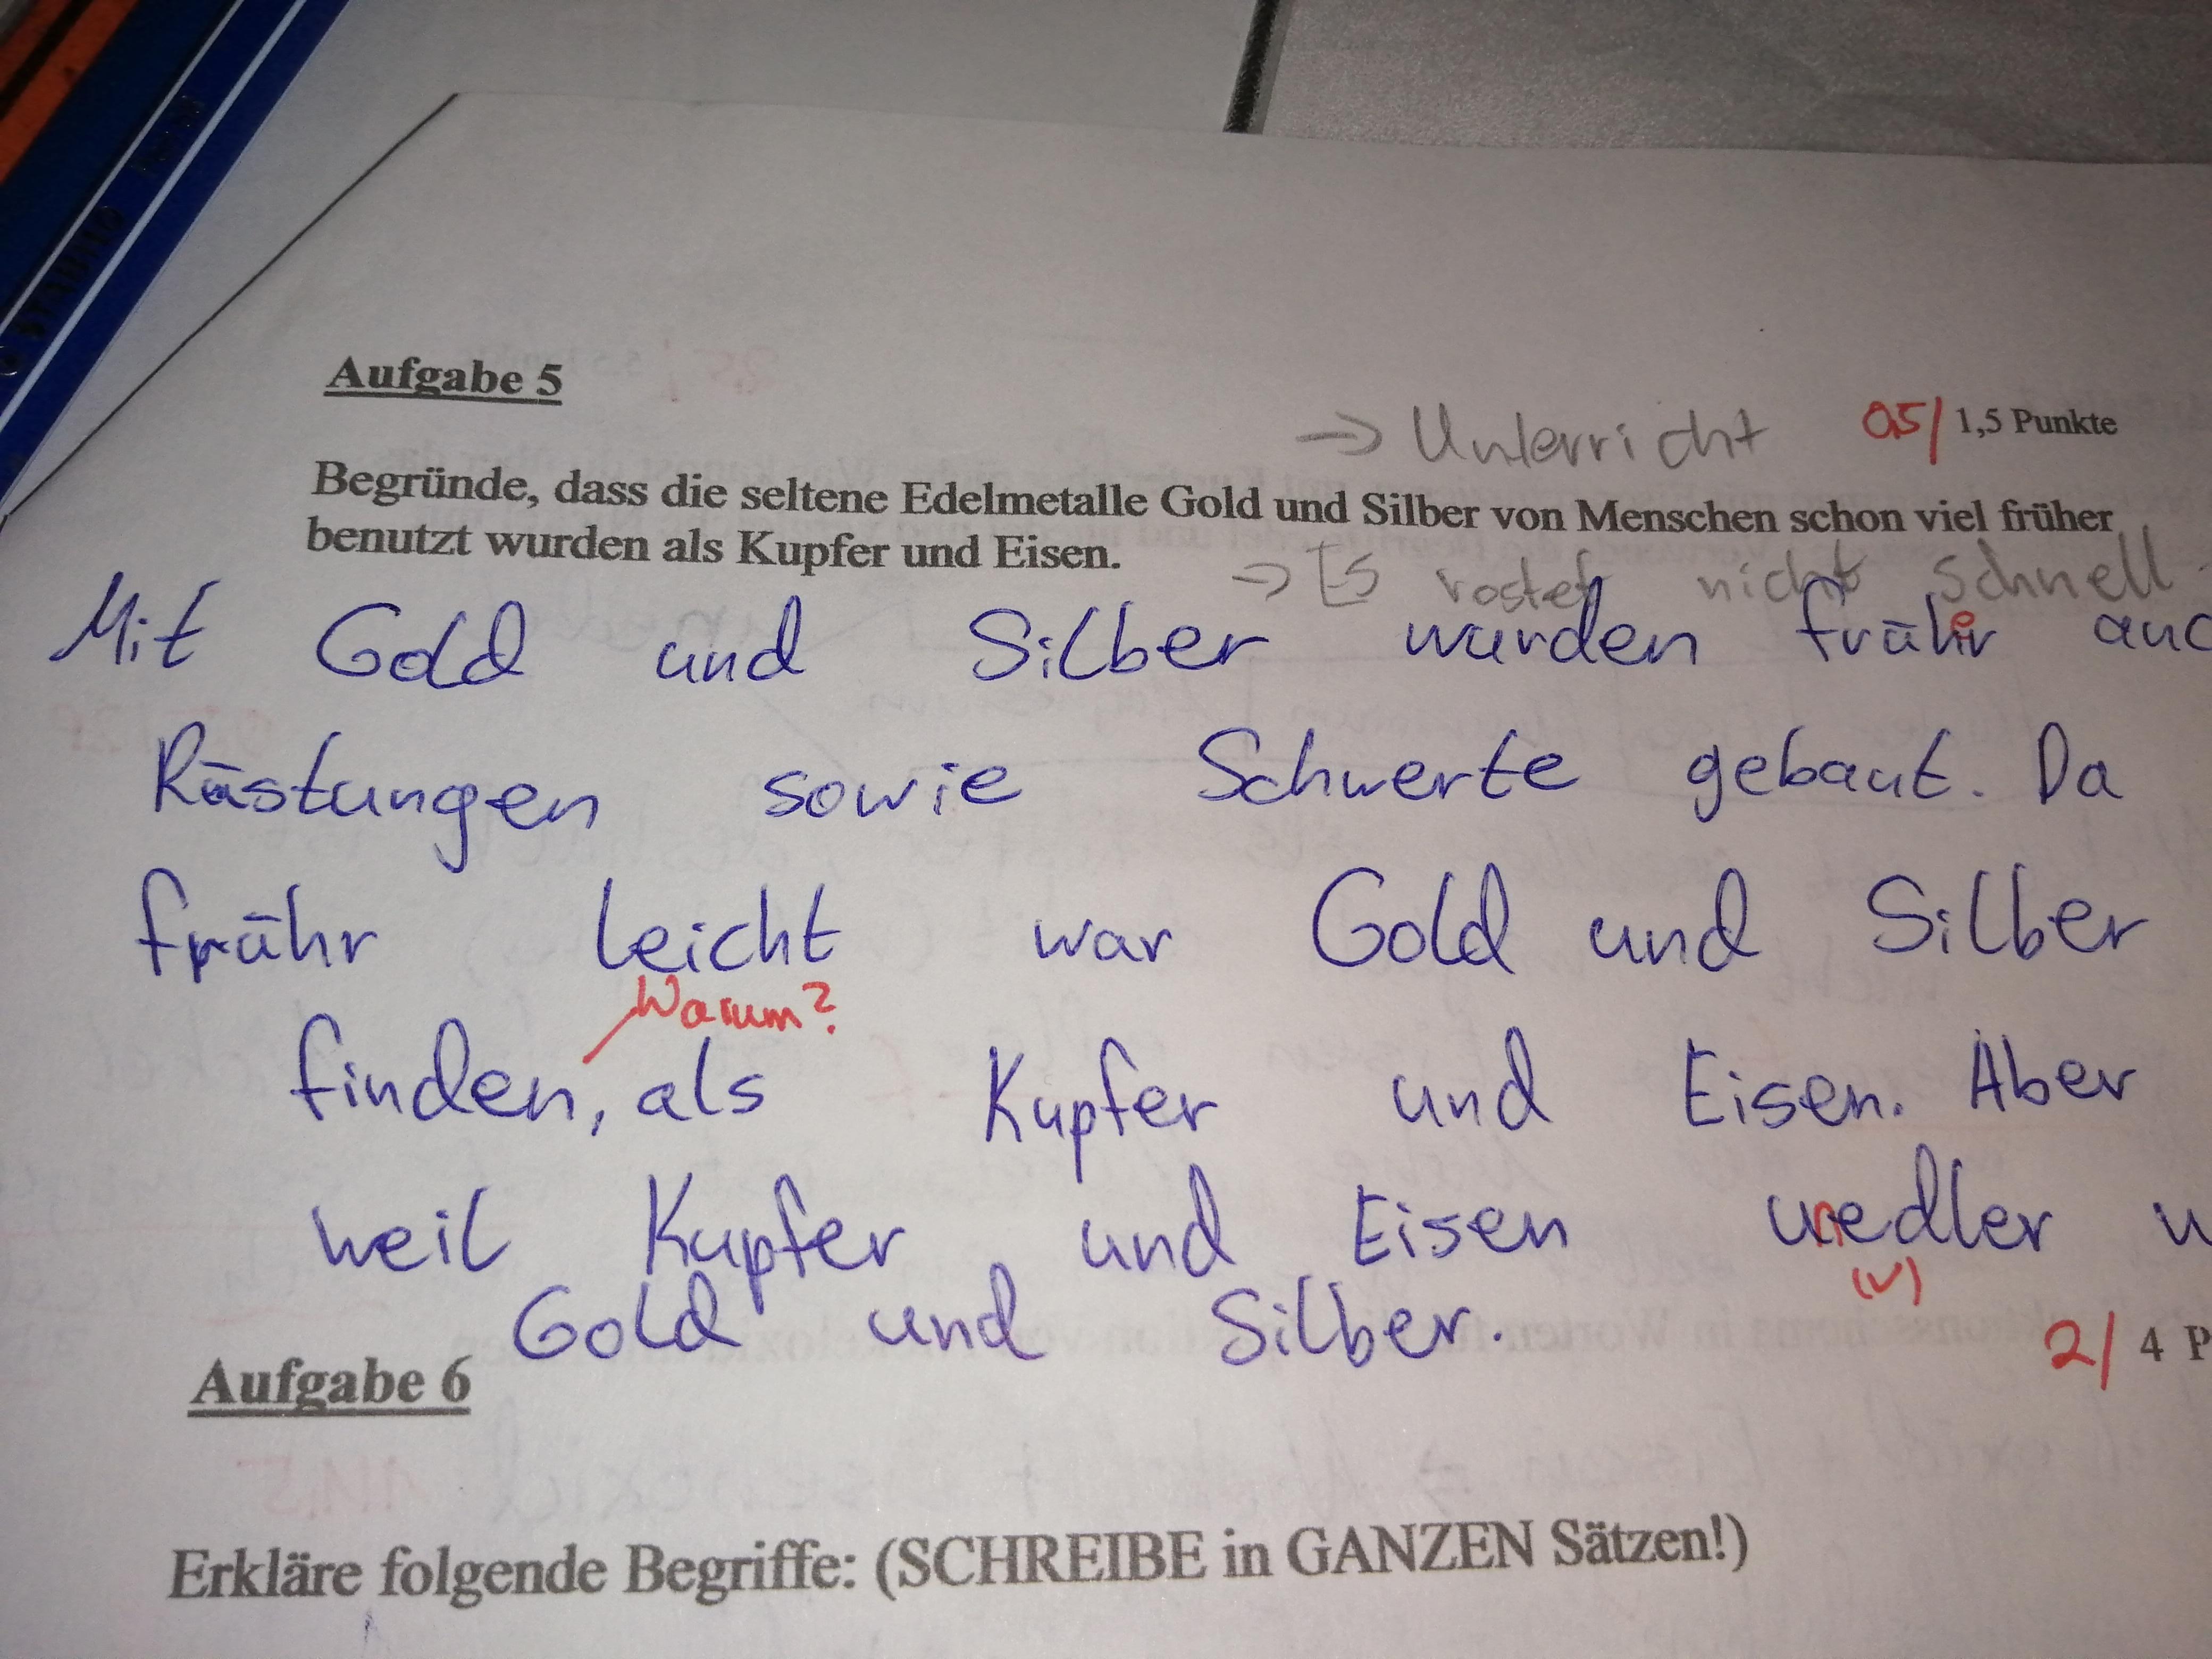 STABILO
Aufgabe 5
→ Unterricht
0,5/ 1,5 Punkte
Begründe, dass die seltene Edelmetalle Gold und Silber von Menschen schon viel früher
benutzt wurden als Kupfer und Eisen.
→ Es rostet nicht schnell.
Mit Gold und Silber wurden früher auc
Rüstungen sowie Schwerte gebaut. Da
frühr leicht war Gold und Silber
Warum?
finden, als Kupfer und Eisen. Aber
weil Kupfer und Eisen unedler w
(✓)
Gold und Silber.
2/ 4 P
Aufgabe 6
Erkläre folgende Begriffe: (SCHREIBE in GANZEN Sätzen!)